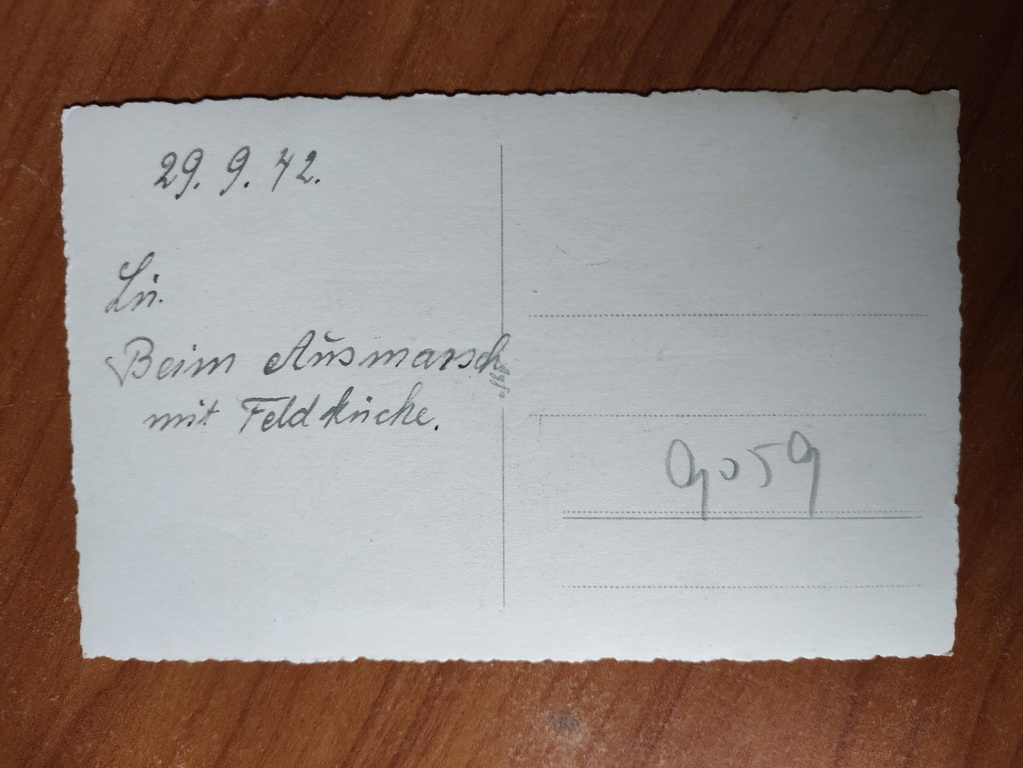 29. 9. 42.
Beim Ausmarsch
mit Feldküche.
9059